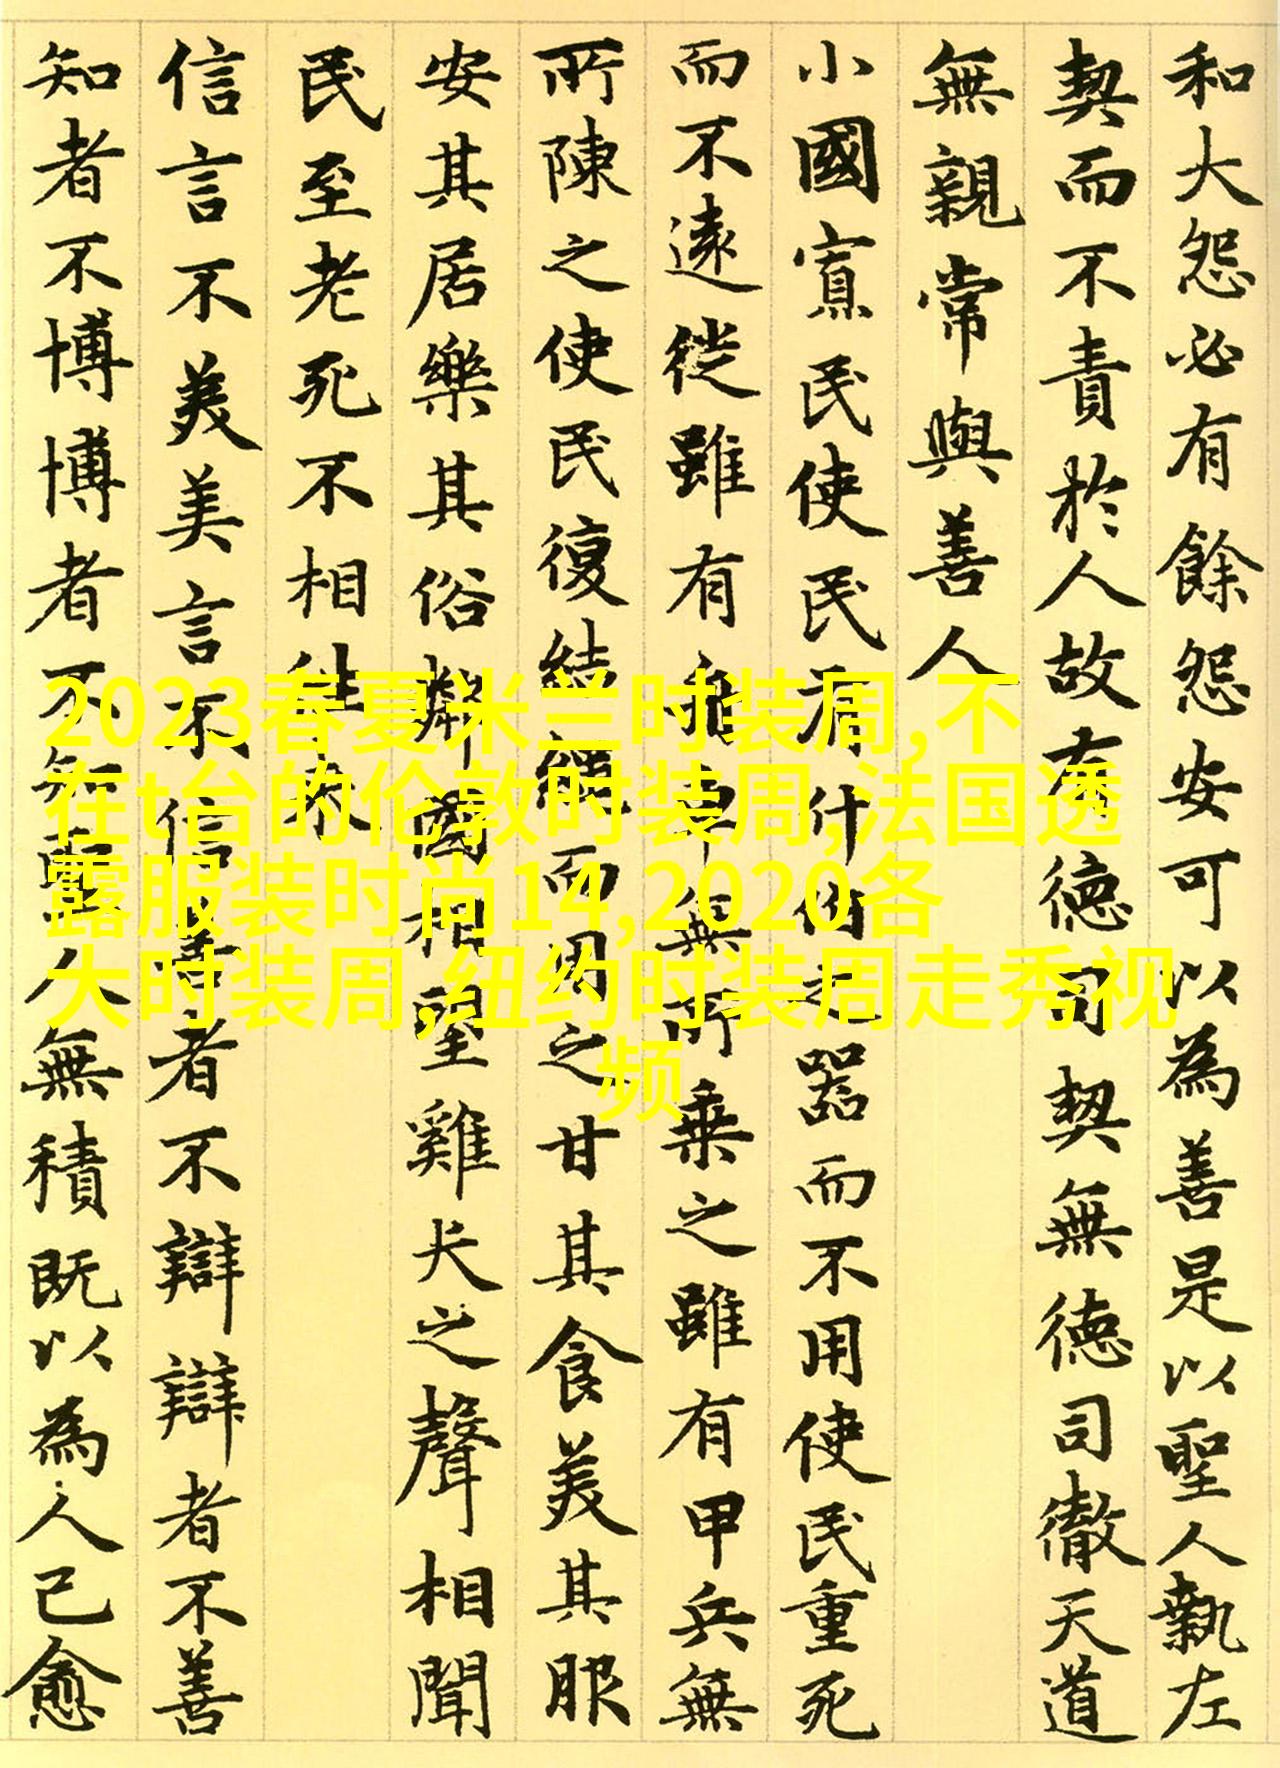 和大怨必有餘怨安可以為善是以聖人執左
契而不責於人故有德司契無德司徹天道
無親常與善人
小國寡民使民有什伯之器而不用使民重死
而不遠徙雖有舟車無所乘之雖有甲兵無
所陳之使民復結繩而用之甘其食美其服
安其居樂其俗鄰國相望雞犬之聲相聞
民至老死不相往來
信言不美美言不信善者不辯辯者不善
知者不博博者不知聖人無積既以為人己愈
2023春夏米兰时装周,不
在t台的伦敦时装周,法国透
露服装时尚14,2020各
大时装周,纽约时装周走秀视
频